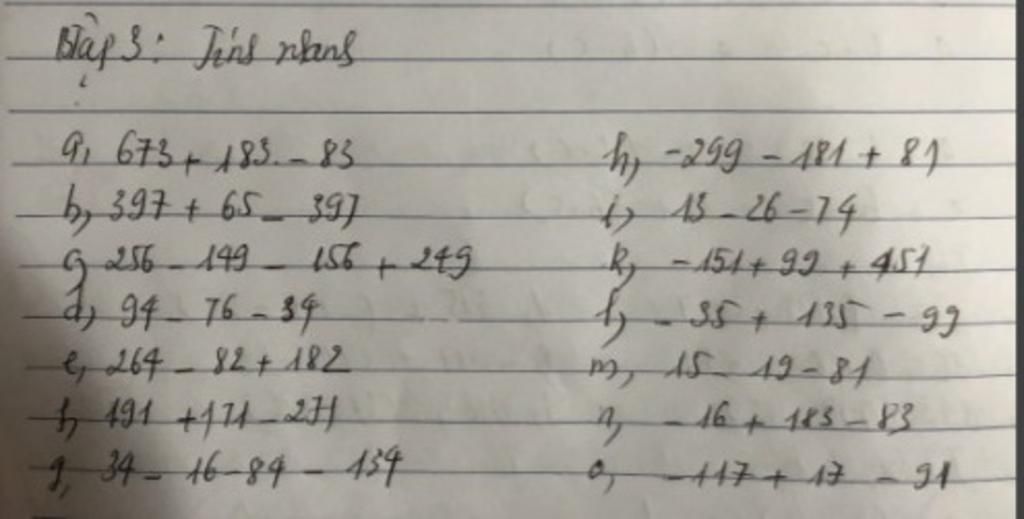 Bài tập 3: Tính nhanh
a, 673 + 183 - 83
b, 397 + 65 - 397
c, 256 - 149 - 156 + 249
d, 94 - 76 - 34
e, 264 - 82 + 182
f, 191 + 171 - 271
g, 34 - 16 - 84 - 134
h, -299 - 181 + 81
i, 13 - 26 - 74
k, -151 + 99 + 451
l, - 35 + 135 - 99
m, 15 - 19 - 81
n, - 16 + 183 - 83
o, -117 + 17 - 91